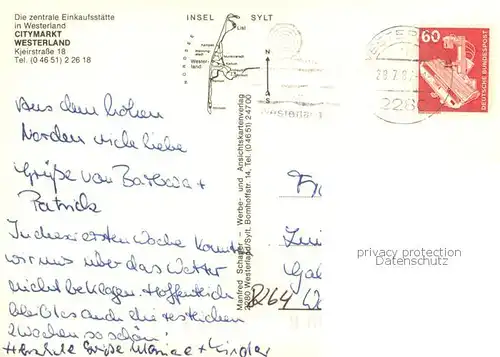 Die zentrale Einkaufsstätte
in Westerland
CITYMARKT
WESTERLAND
Kjeirstraße 18
Tel. (0 46 51) 2 26 18
INSEL SYLT
NORDSEE
List
Kampen
Wester-
land
N
S
Westerland
60
DEUTSCHE BUNDESPOST
Manfred Schager - Werbe- und Ansichtskartenverlag
2280 Westerland/Sylt, Bomhoffstr. 14, Tel. (04651) 24700
Aus dem hohen
Norden viele liebe
Grüße von Barbara +
Patrick
In der ersten Woche konnten
wir uns über das Wetter
nicht beklagen. Hoffentlich
bleibt es auch die restlichen
2 Wochen so schön!
Herzliche Grüße + Kinder
8264
privacy protection
Datenschutz